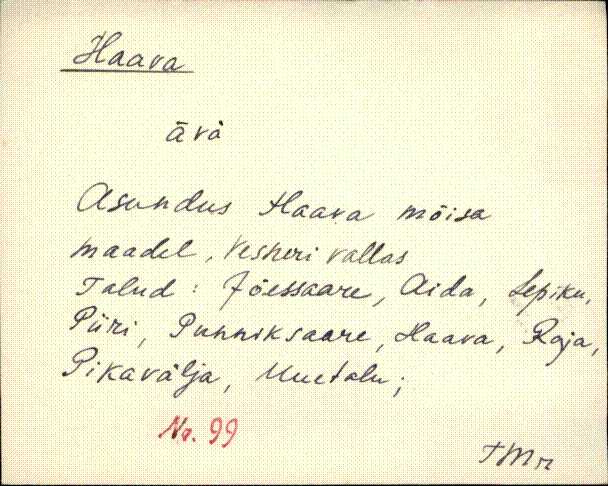 Haava
āvȧ
Asundus Haava mõisa
maadel, Vesneri vallas
Talud: Jõessaare, Aida, Lepiku,
Piiri, Punniksaare, Haava, Raja,
Pikavälja, Uuetalu;
No. 99